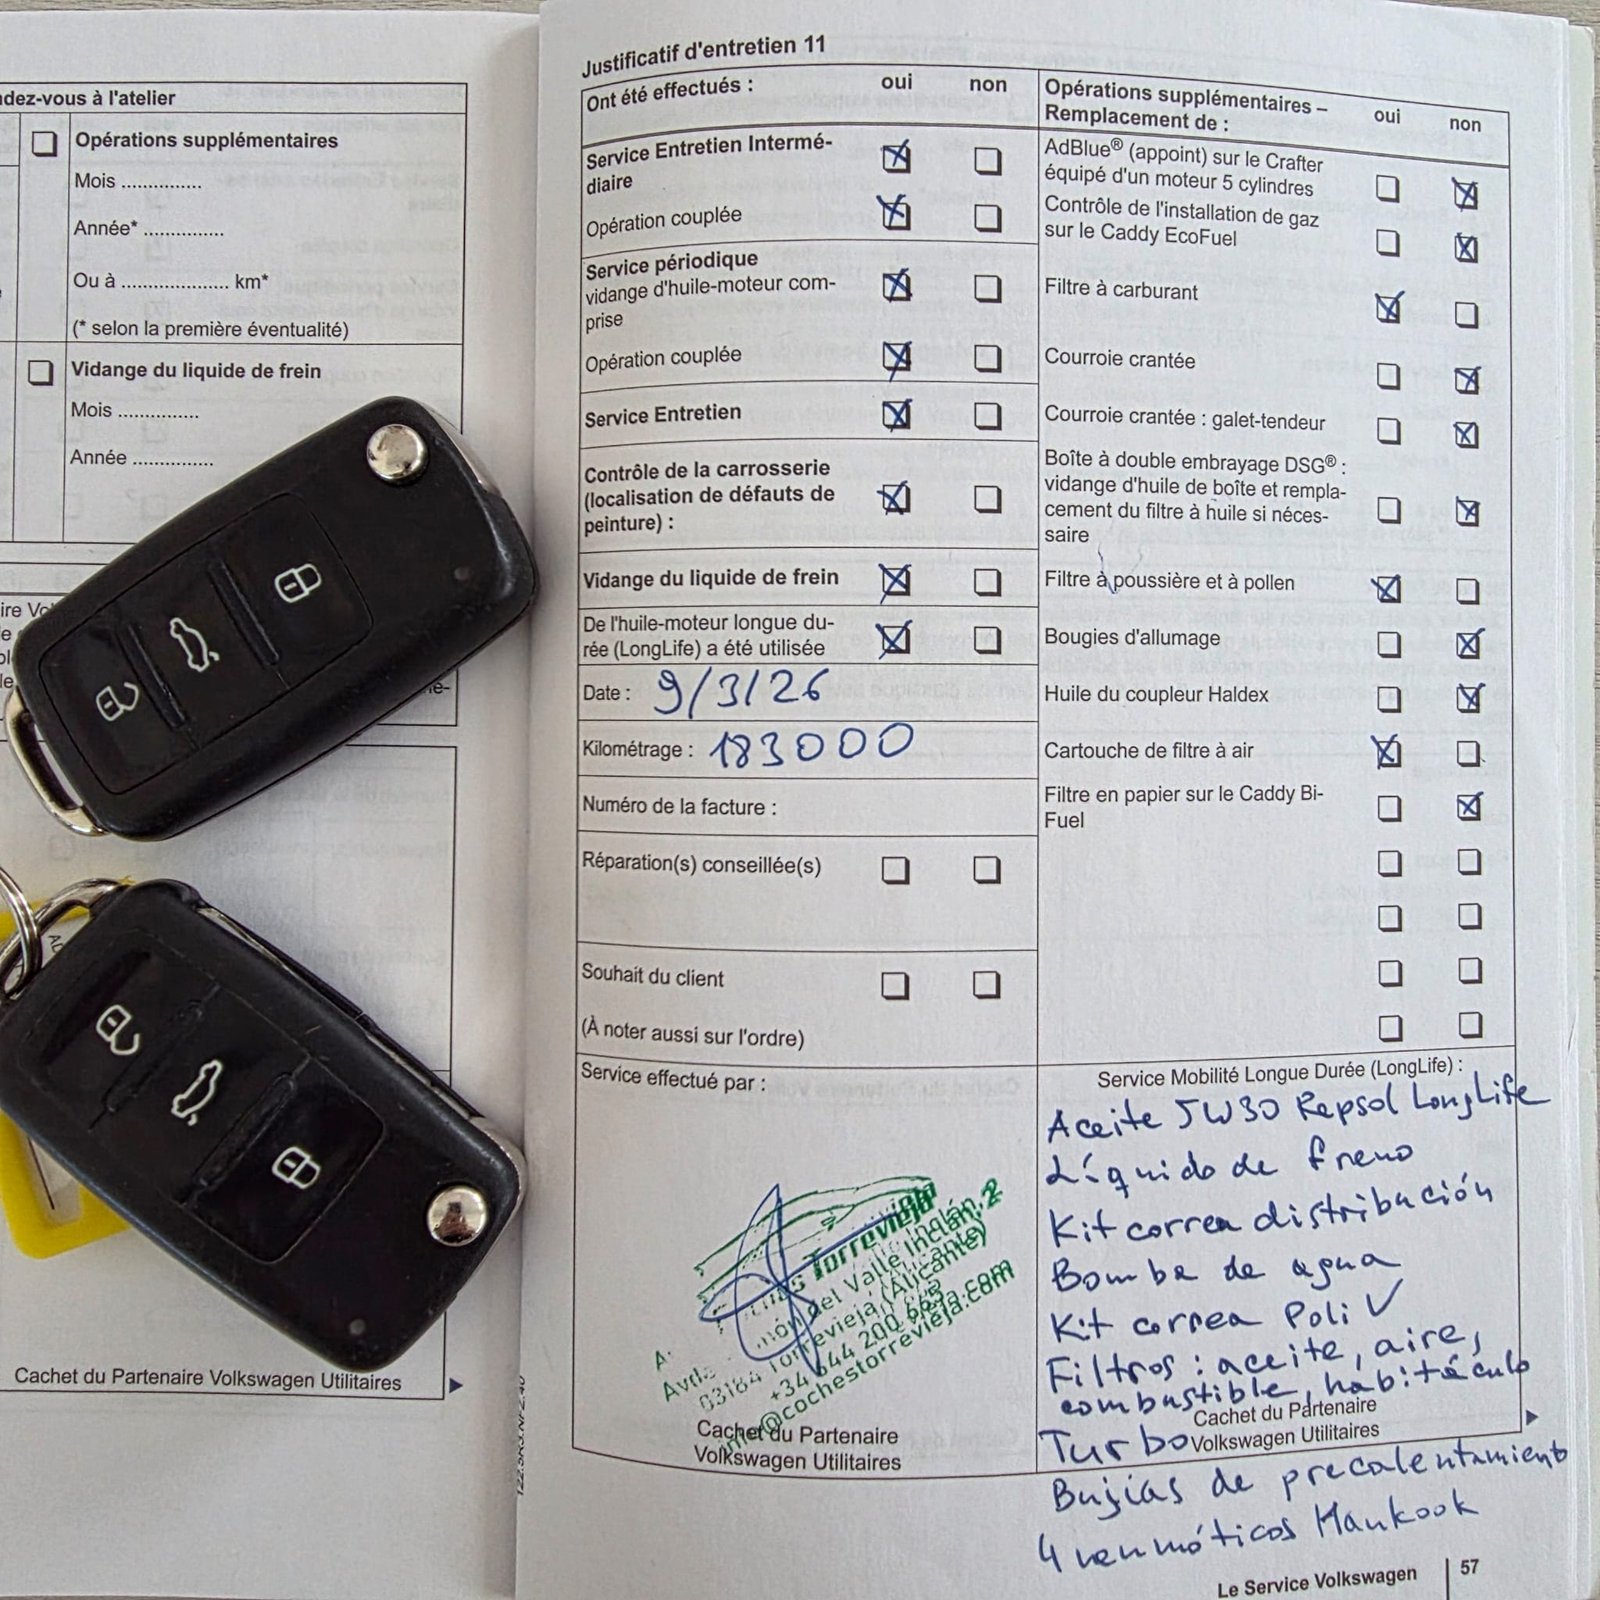 dez-vous à l'atelier
Opérations supplémentaires
Mois ...............
Année* ...............
Ou à .................... km*
(* selon la première éventualité)
Vidange du liquide de frein
Mois ...............
Année ...............
Cachet du Partenaire Volkswagen Utilitaires
Justificatif d'entretien 11
Ont été effectués : oui non
Service Entretien Intermé-
diaire
Opération couplée
Service périodique
vidange d'huile-moteur com-
prise
Opération couplée
Service Entretien
Contrôle de la carrosserie
(localisation de défauts de
peinture) :
Vidange du liquide de frein
De l'huile-moteur longue du-
rée (LongLife) a été utilisée
Date : 9/3/26
Kilométrage : 183000
Numéro de la facture :
Réparation(s) conseillée(s)
Souhait du client
(À noter aussi sur l'ordre)
Service effectué par :
Torrevieja
del Valle Inclán, 2
03184 Torrevieja (Alicante)
+34 644 200 665
@cochestorrevieja.com
Cachet du Partenaire
Volkswagen Utilitaires
Opérations supplémentaires –
Remplacement de : oui non
AdBlue® (appoint) sur le Crafter
équipé d'un moteur 5 cylindres
Contrôle de l'installation de gaz
sur le Caddy EcoFuel
Filtre à carburant
Courroie crantée
Courroie crantée : galet-tendeur
Boîte à double embrayage DSG® :
vidange d'huile de boîte et rempla-
cement du filtre à huile si néces-
saire
Filtre à poussière et à pollen
Bougies d'allumage
Huile du coupleur Haldex
Cartouche de filtre à air
Filtre en papier sur le Caddy Bi-
Fuel
Service Mobilité Longue Durée (LongLife) :
Aceite 5W30 Repsol LongLife
Líquido de freno
Kit correa distribución
Bomba de agua
Kit correa Poli ✓
Filtros : aceite, aire,
combustible, habitáculo
Cachet du Partenaire
Turbo
Volkswagen Utilitaires
Bujías de precalentamiento
4 neumáticos Hankook
Le Service Volkswagen | 57